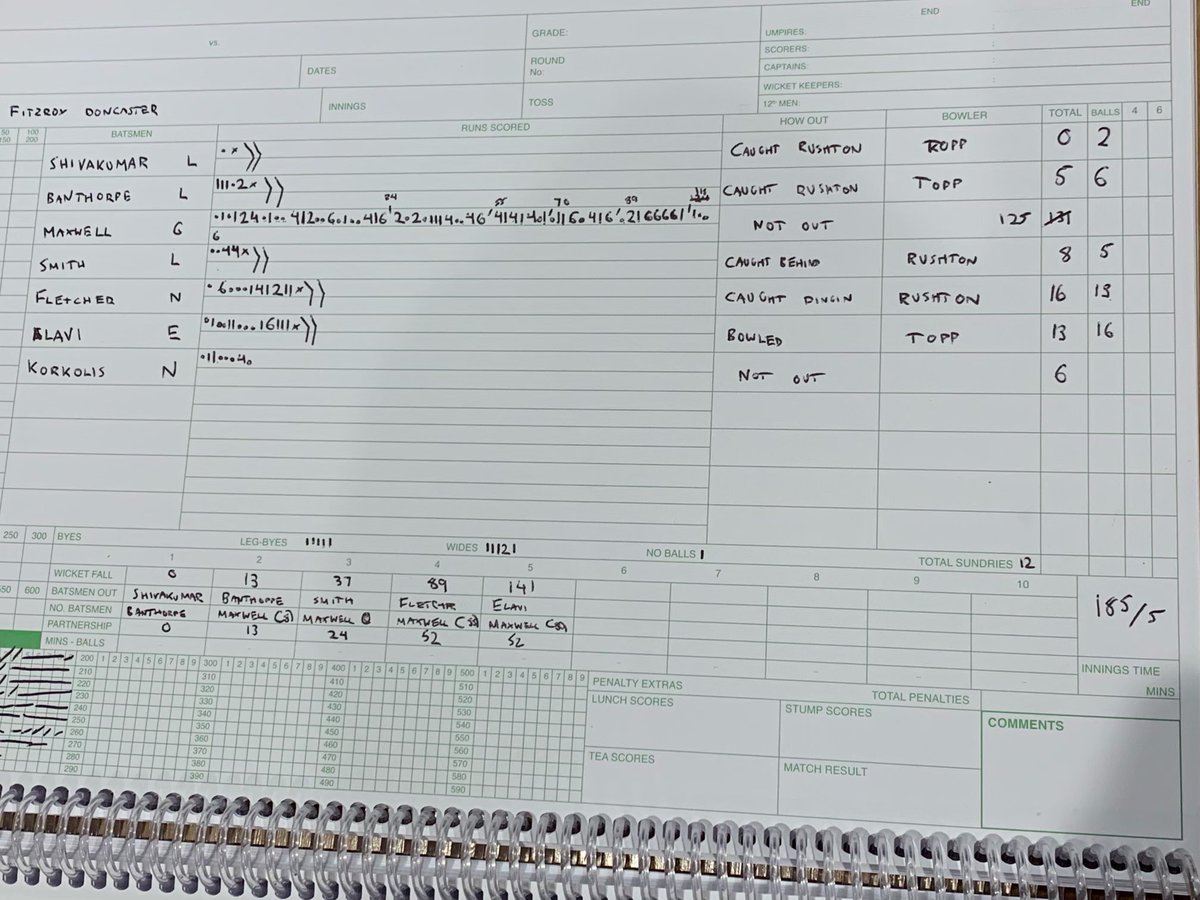 END END
vs. GRADE: UMPIRES:
SCORERS:
DATES ROUND No: CAPTAINS:
WICKET KEEPERS:
FITZROY DONCASTER INNINGS TOSS 12th MEN:
50 150 100 200 BATSMEN RUNS SCORED HOW OUT BOWLER TOTAL BALLS 4 6
SHIVAKUMAR L CAUGHT RUSHTON TOPP 0 2
BANTHORPE L 111·2x CAUGHT RUSHTON TOPP 5 6
MAXWELL G NOT OUT 125
6
SMITH L ··44x CAUGHT BEHIND RUSHTON 8 5
FLETCHER N ·6000141211x CAUGHT DINGIN RUSHTON 16 13
ELAVI E BOWLED TOPP 13 16
KORKOLIS N NOT OUT 6
250 300 BYES LEG-BYES 11111 WIDES 11121 NO BALLS 1 TOTAL SUNDRIES 12
1 2 3 4 5 6 7 8 9 10
WICKET FALL 0 13 37 89 141
550 600 BATSMEN OUT SHIVAKUMAR BANTHORPE SMITH FLETCHER ELAVI 185/5
NO. BATSMEN BANTHORPE MAXWELL MAXWELL MAXWELL MAXWELL
PARTNERSHIP 0 13 24 52 52
MINS - BALLS
INNINGS TIME
MINS
200 1 2 3 4 5 6 7 8 9 300 1 2 3 4 5 6 7 8 9 400 1 2 3 4 5 6 7 8 9 500 1 2 3 4 5 6 7 8 9
210 310 410 510
220 320 420 520
230 330 430 530
240 340 440 540
250 350 450 550
260 360 460 560
270 370 470 570
280 380 480 580
290 390 490 590
PENALTY EXTRAS TOTAL PENALTIES
LUNCH SCORES STUMP SCORES COMMENTS
TEA SCORES MATCH RESULT